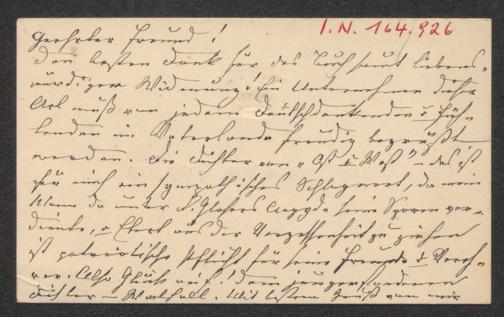 I.N. 164.926
Geehrter Freund!
Den besten Dank für das Buch samt liebens-
würdiger Widmung! Ein Unternehmen dieser
Art muß von jedem Deutschdenkenden u. Füh-
lenden im Vaterlande freudig begrüßt
werden. Die Dichter von „Ost u. West" das ist
für mich ein sympathisches Schlagwort, da mein
Mann da unter seine Sporen ver-
diente, u. aus der Vergessenheit zu ziehen
ist patriotische Pflicht für seine Freunde u. Vereh-
rer. Also Glück auf! dem
Dichter in Walhall. Mit bestem Gruß von mir